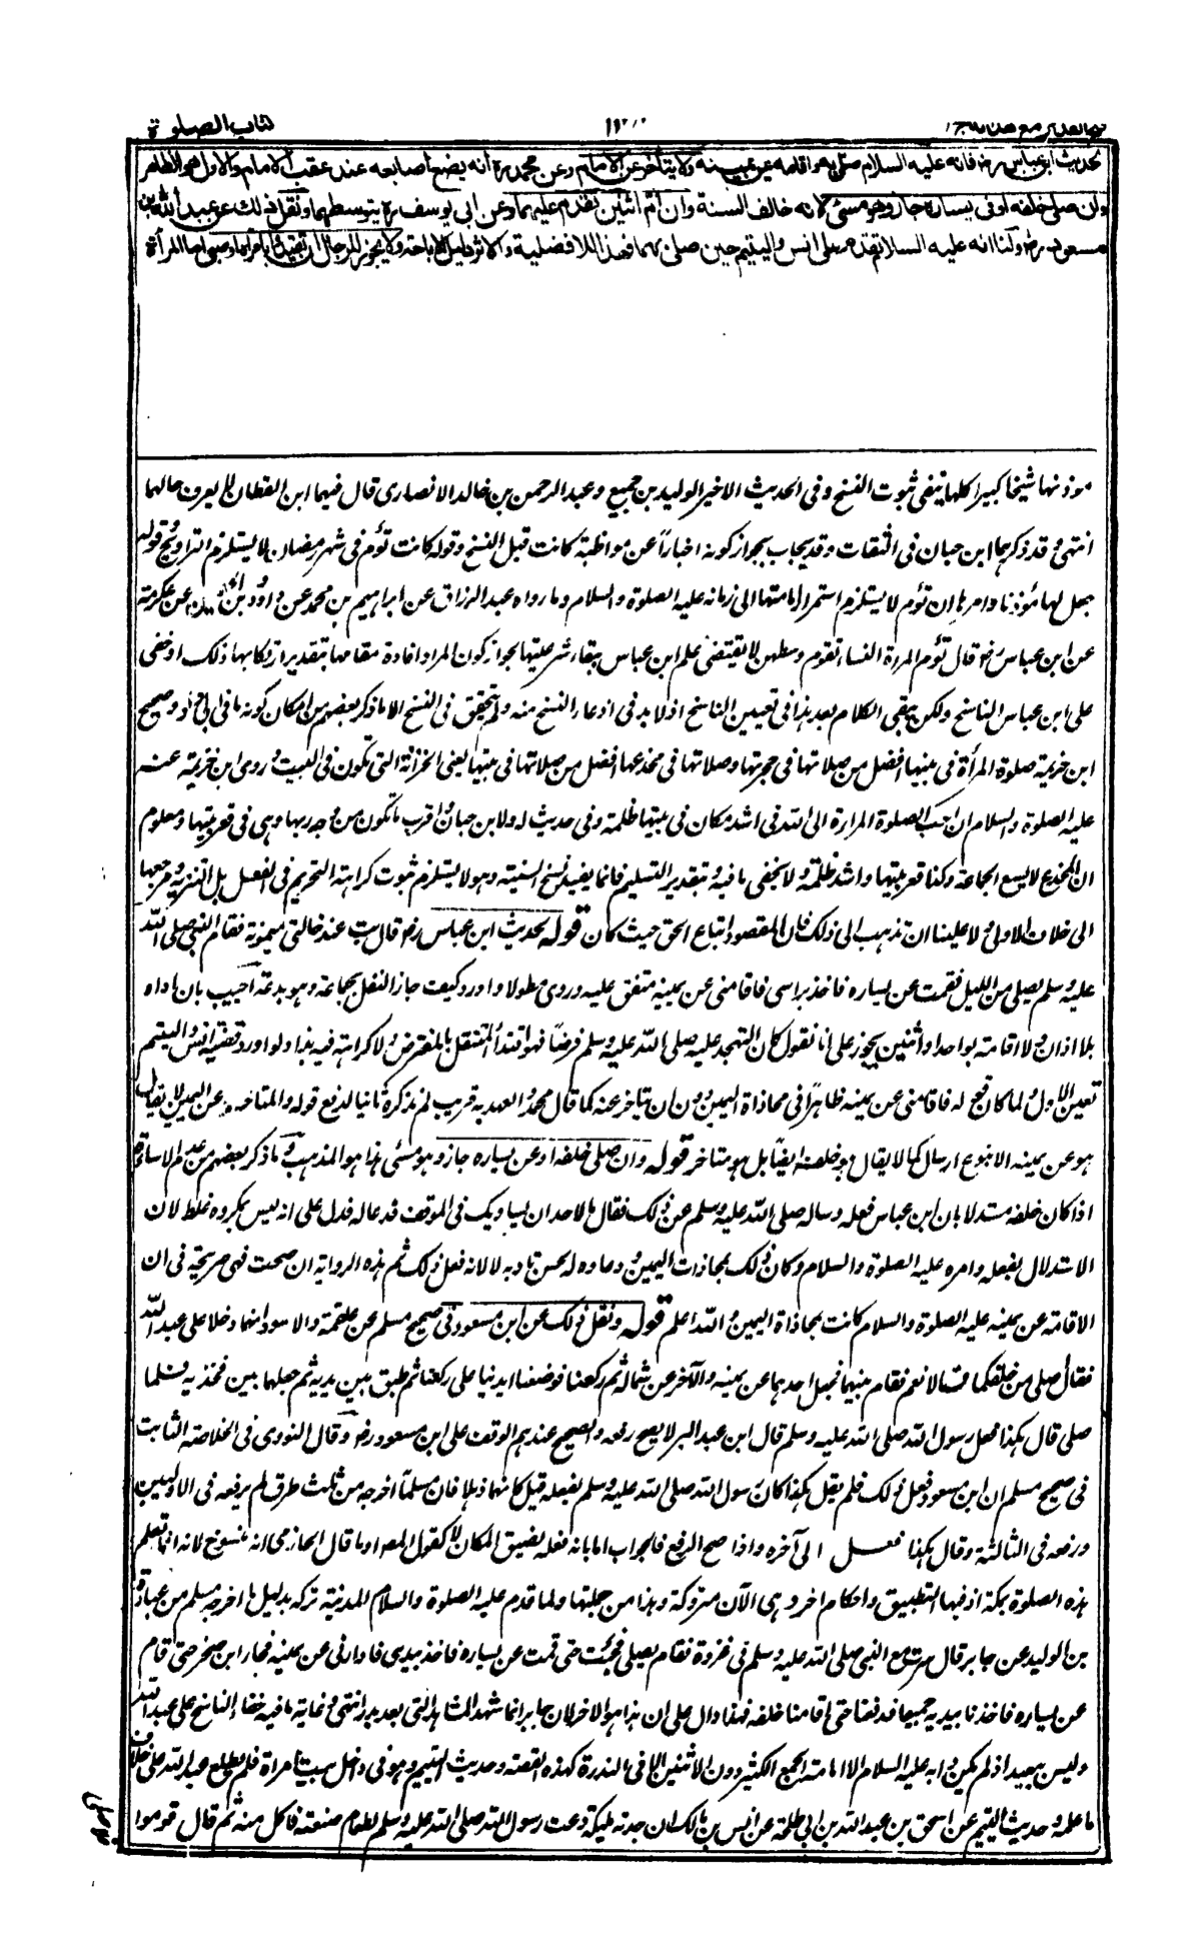 كتاب الصلوة
لحديث ابن عباس رض فانه عليه السلام صلى به واقامه عن يمينه ولا يتأخر عن الامام وعن محمد رح انه يضع اصابعه عند عقب الامام والاول هو الظاهر
وان صلى خلفه او في يساره جاز وهو مسئ لانه خالف السنة وان أم اثنين تقدم عليهما وعن ابي يوسف رح يتوسطهما ونقل ذلك عن عبد الله بن
مسعود رض ولنا انه عليه السلام تقدم على انس واليتيم حين صلى بهما فهذا للافضلية والاثر دليل الاباحة ولا يجوز للرجال ان يقتدوا بامرأة وصبي اما المرأة
موذنها شيخا كبيرا كلها ينفى ثبوت النسخ وفي الحديث الاخير الوليد بن جميع وعبد الرحمن بن خالد الانصاري قال فيهما ابن القطان لا يعرف حالهما
انتهى وقد ذكرهما ابن حبان في الثقات وقد يجاب بجواز كونه اخبارا عن مواظبة كانت قبل النسخ وقوله كانت تؤم في شهر رمضان لا يستلزم التراويح وقوله
جعل لها مؤذنا وامرها ان تؤم لا يستلزم استمرار امامتها الى زمانه عليه الصلوة والسلام وما رواه عبد الرزاق عن ابراهيم بن محمد عن داود بن الحصين عن عكرمة
عن ابن عباس رض قال تؤم المرأة النساء تقوم وسطهن لا يقتضي علم ابن عباس ببقاء شرعيتها لجواز كون المراد افادة مقامها بتقدير ارتكابها ذلك او خفى
على ابن عباس الناسخ ولكن يبقى الكلام بعد هذا في تعيين الناسخ اذ لا بد في ادعاء النسخ منه ولم يتحقق في النسخ الا ما ذكر بعضهم من امكان كونه ما في ابي داود وصحيح
ابن خزيمة صلوة المرأة في بيتها افضل من صلاتها في حجرتها وصلاتها في مخدعها افضل من صلاتها في بيتها يعنى الخزانة التي تكون في البيت وروى ابن خزيمة عنه
عليه الصلوة والسلام ان احب الصلوة المرأة الى الله في اشد مكان في بيتها ظلمة وفي حديث له ولابن حبان واقرب ما تكون من وجه ربها وهي في قعر بيتها ومعلوم
ان المخدع لا يسع الجماعة وكذا قعر بيتها واشد ظلمة ولا يخفى ما فيه وبتقدير التسليم فانما يفيد نسخ السنية وهو لا يستلزم ثبوت كراهة التحريم في الفعل بل التنزيه ومرجعها
الى خلاف الاولى ولا علينا ان نذهب الى ذلك فان المقصود اتباع الحق حيث كان قوله لحديث ابن عباس رض قال بت عند خالتي ميمونة فقام النبي صلى الله
عليه وسلم يصلي من الليل فقمت عن يساره فاخذ براسي فاقامني عن يمينه متفق عليه وروى مطولا واورد كيف جاز النفل بجماعة وهو بدعة اجيب بان اداءه
بلا اذان ولا اقامة بواحد او اثنين يجوز على انا نقول كان التهجد عليه صلى الله عليه وسلم فرضا فهو اقتداء المتنفل بالمفترض ولا كراهة فيه
هو عن يمينه الا بنوع ارسال كما لا يقال هو خلفه ايضا بل هو متاخر قوله وان صلى خلفه او عن يساره جاز وهو مسئى هذا هو المذهب وما ذكر بعضهم من عدم الاساءة
اذا كان خلفه مستدلا بان ابن عباس فعله وساله صلى الله عليه وسلم عن ذلك فقال ما لاحد ان يساويك في الموقف فدعا له فدل على انه ليس بمكروه غلط لان
الاستدلال بفعله وامره عليه الصلوة والسلام وكان ذلك بمحاذات اليمين ودعاؤه له لحسن تادبه لا لانه فعل ذلك ثم هذه الرواية ان صحت فهى صريحة في ان
الاقامة عن يمينه عليه الصلوة والسلام كانت بمحاذاة اليمين والله اعلم قوله ونقل ذلك عن ابن مسعود في صحيح مسلم عن علقمة والاسود انهما دخلا على عبد الله
فقال أصلى من خلفكما قالا نعم فقام بينهما فجعل احدهما عن يمينه والآخر عن شماله ثم ركعنا فوضعنا ايدينا على ركبنا ثم طبق بين يديه ثم جعلهما بين فخذيه فلما
صلى قال هكذا فعل رسول الله صلى الله عليه وسلم قال ابن عبد البر لا يصح رفعه والصحيح عندهم الوقف على ابن مسعود رض وقال النووي في الخلاصة الثابت
في صحيح مسلم ان ابن مسعود فعل ذلك فلم يقل هكذا كان رسول الله صلى الله عليه وسلم يفعله قيل كانهما ذهلا فان مسلما اخرجه من ثلث طرق لم يرفعه في الاوليين
ورفعه في الثالثة وقال هكذا فعل الى آخره واذا صح الرفع فالجواب اما بانه فعله لضيق المكان او ما قال الحازمي انه منسوخ لانه انما تعلم
هذه الصلوة بمكة اذ فيها التطبيق واحكام اخر وهي الآن متروكة وهذا من جملتها ولما قدم عليه الصلوة والسلام المدينة تركه بدليل ما اخرجه مسلم من عبادة
بن الوليد عن جابر قال سرت مع النبي صلى الله عليه وسلم في غزوة فقام يصلي فجئت حتى قمت عن يساره فاخذ بيدي فادارني عن يمينه فجاء ابن صخر حتى قام
عن يساره فاخذنا بيديه جميعا فدفعنا حتى اقامنا خلفه فهذا دال على ان هذا هو الآخر لان جابرا انما شهد المشاهد التي بعد بدر انتهى وغاية ما فيه خفاء الناسخ على عبد الله
وليس ببعيد اذ لم يكن دابه عليه السلام الا امامة الجمع الكثير دون الاثنين الا في الندرة كهذه القصة وحديث اليتيم وهو في داخل بيت امرأة فلم يطلع عبد الله على خلاف
ما علمه وحديث اليتيم عن اسحق بن عبد الله بن ابي طلحة عن انس بن مالك ان جدته مليكة دعت رسول الله صلى الله عليه وسلم لطعام صنعته فاكل منه ثم قال قوموا